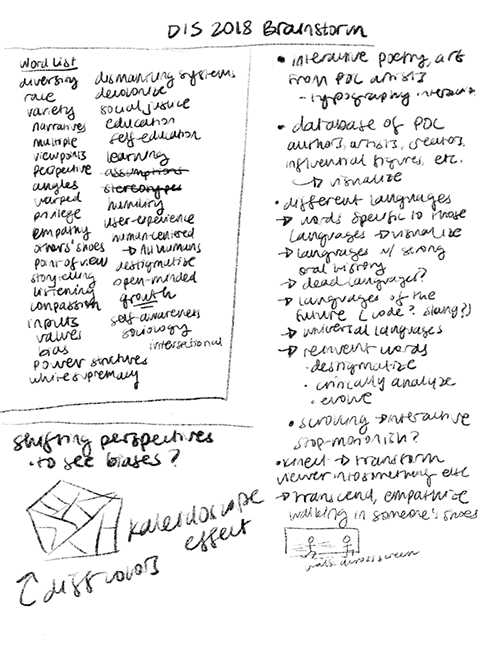 DIS 2018 Brainstorm
Word List
diversity
race
variety
narratives
multiple
viewpoints
perspective
angles
warped
privilege
empathy
others' shoes
point of view
storytelling
listening
compassion
inputs
values
bias
power structures
white supremacy
dismantling systems
decolonise
social justice
education
self-education
learning
assumptions
stereotypes
humility
user-experience
human-centered
→ All humans
destigmatise
open-minded
growth
self awareness
sociology
intersectional
• interactive poetry, art
from POC artists
- typography
• database of POC
authors, artists, creators,
influential figures, etc.
↳ visualize
• different languages
→ words specific to those
languages → visualize
→ languages w/ strong
oral history
→ dead languages?
→ languages of the
future (code? slang?)
→ universal languages
→ reinvent words
• destigmatize
• critically analyze
• evolve
• scrolling → interactive
stop-motion?
• kinect → transform
viewer into something else
→ transcend, empathize
walking in someone's shoes
walk across screen
shifting perspectives
• to see biases?
kaleidoscope
effect
↑ diff colors